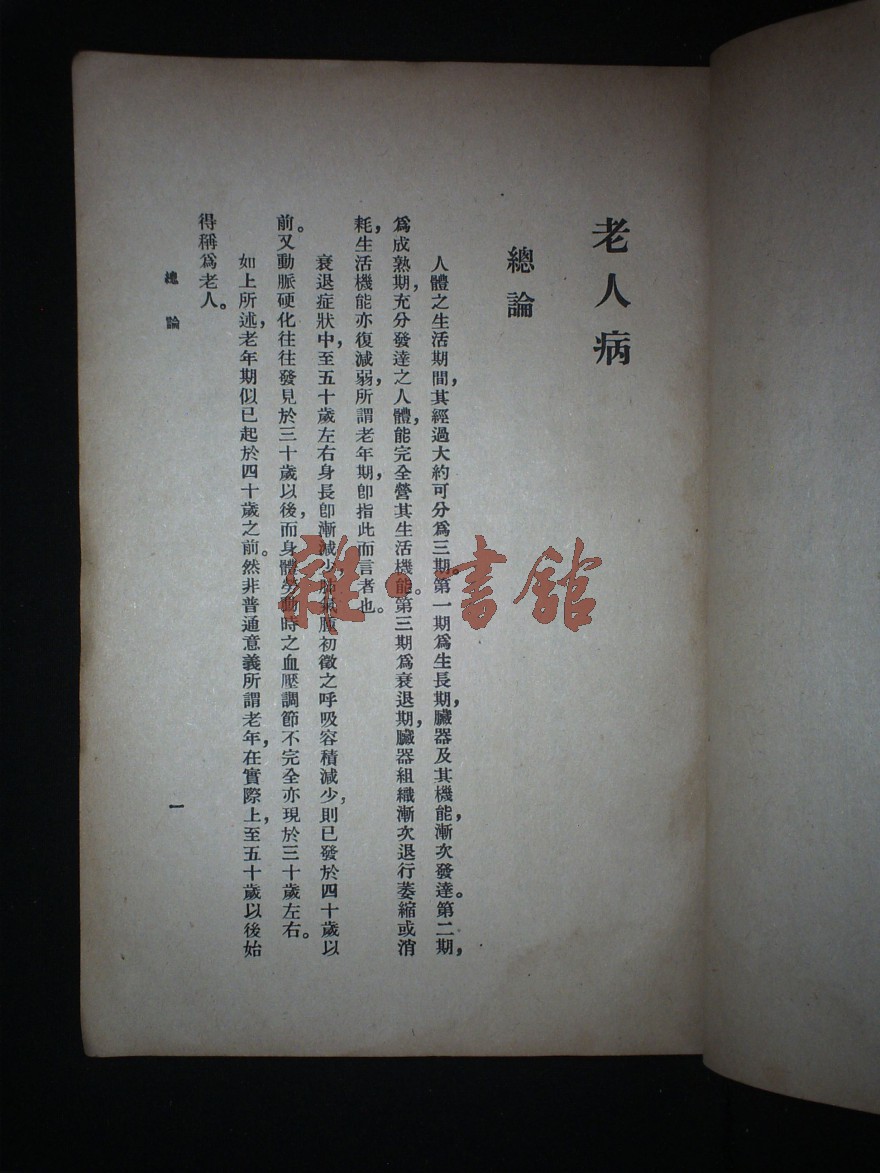 老人病
總論
人體之生活期間，其經過大約可分爲三期。第一期爲生長期，臟器及其機能，漸次發達。第二期，
爲成熟期，充分發達之人體，能完全營其生活機能。第三期爲衰退期，臟器組織漸次退行萎縮或消
耗，生活機能亦復減弱，所謂老年期，卽指此而言者也。
衰退症狀中，至五十歲左右身長卽漸減少，肺氣腫初徵之呼吸容積減少，則已發於四十歲以
前。又動脈硬化往往發見於三十歲以後，而身體勞動時之血壓調節不完全亦現於三十歲左右。
如上所述，老年期似已起於四十歲之前。然非普通意義所謂老年，在實際上，至五十歲以後始
得稱爲老人。
總論
一
雜·書館